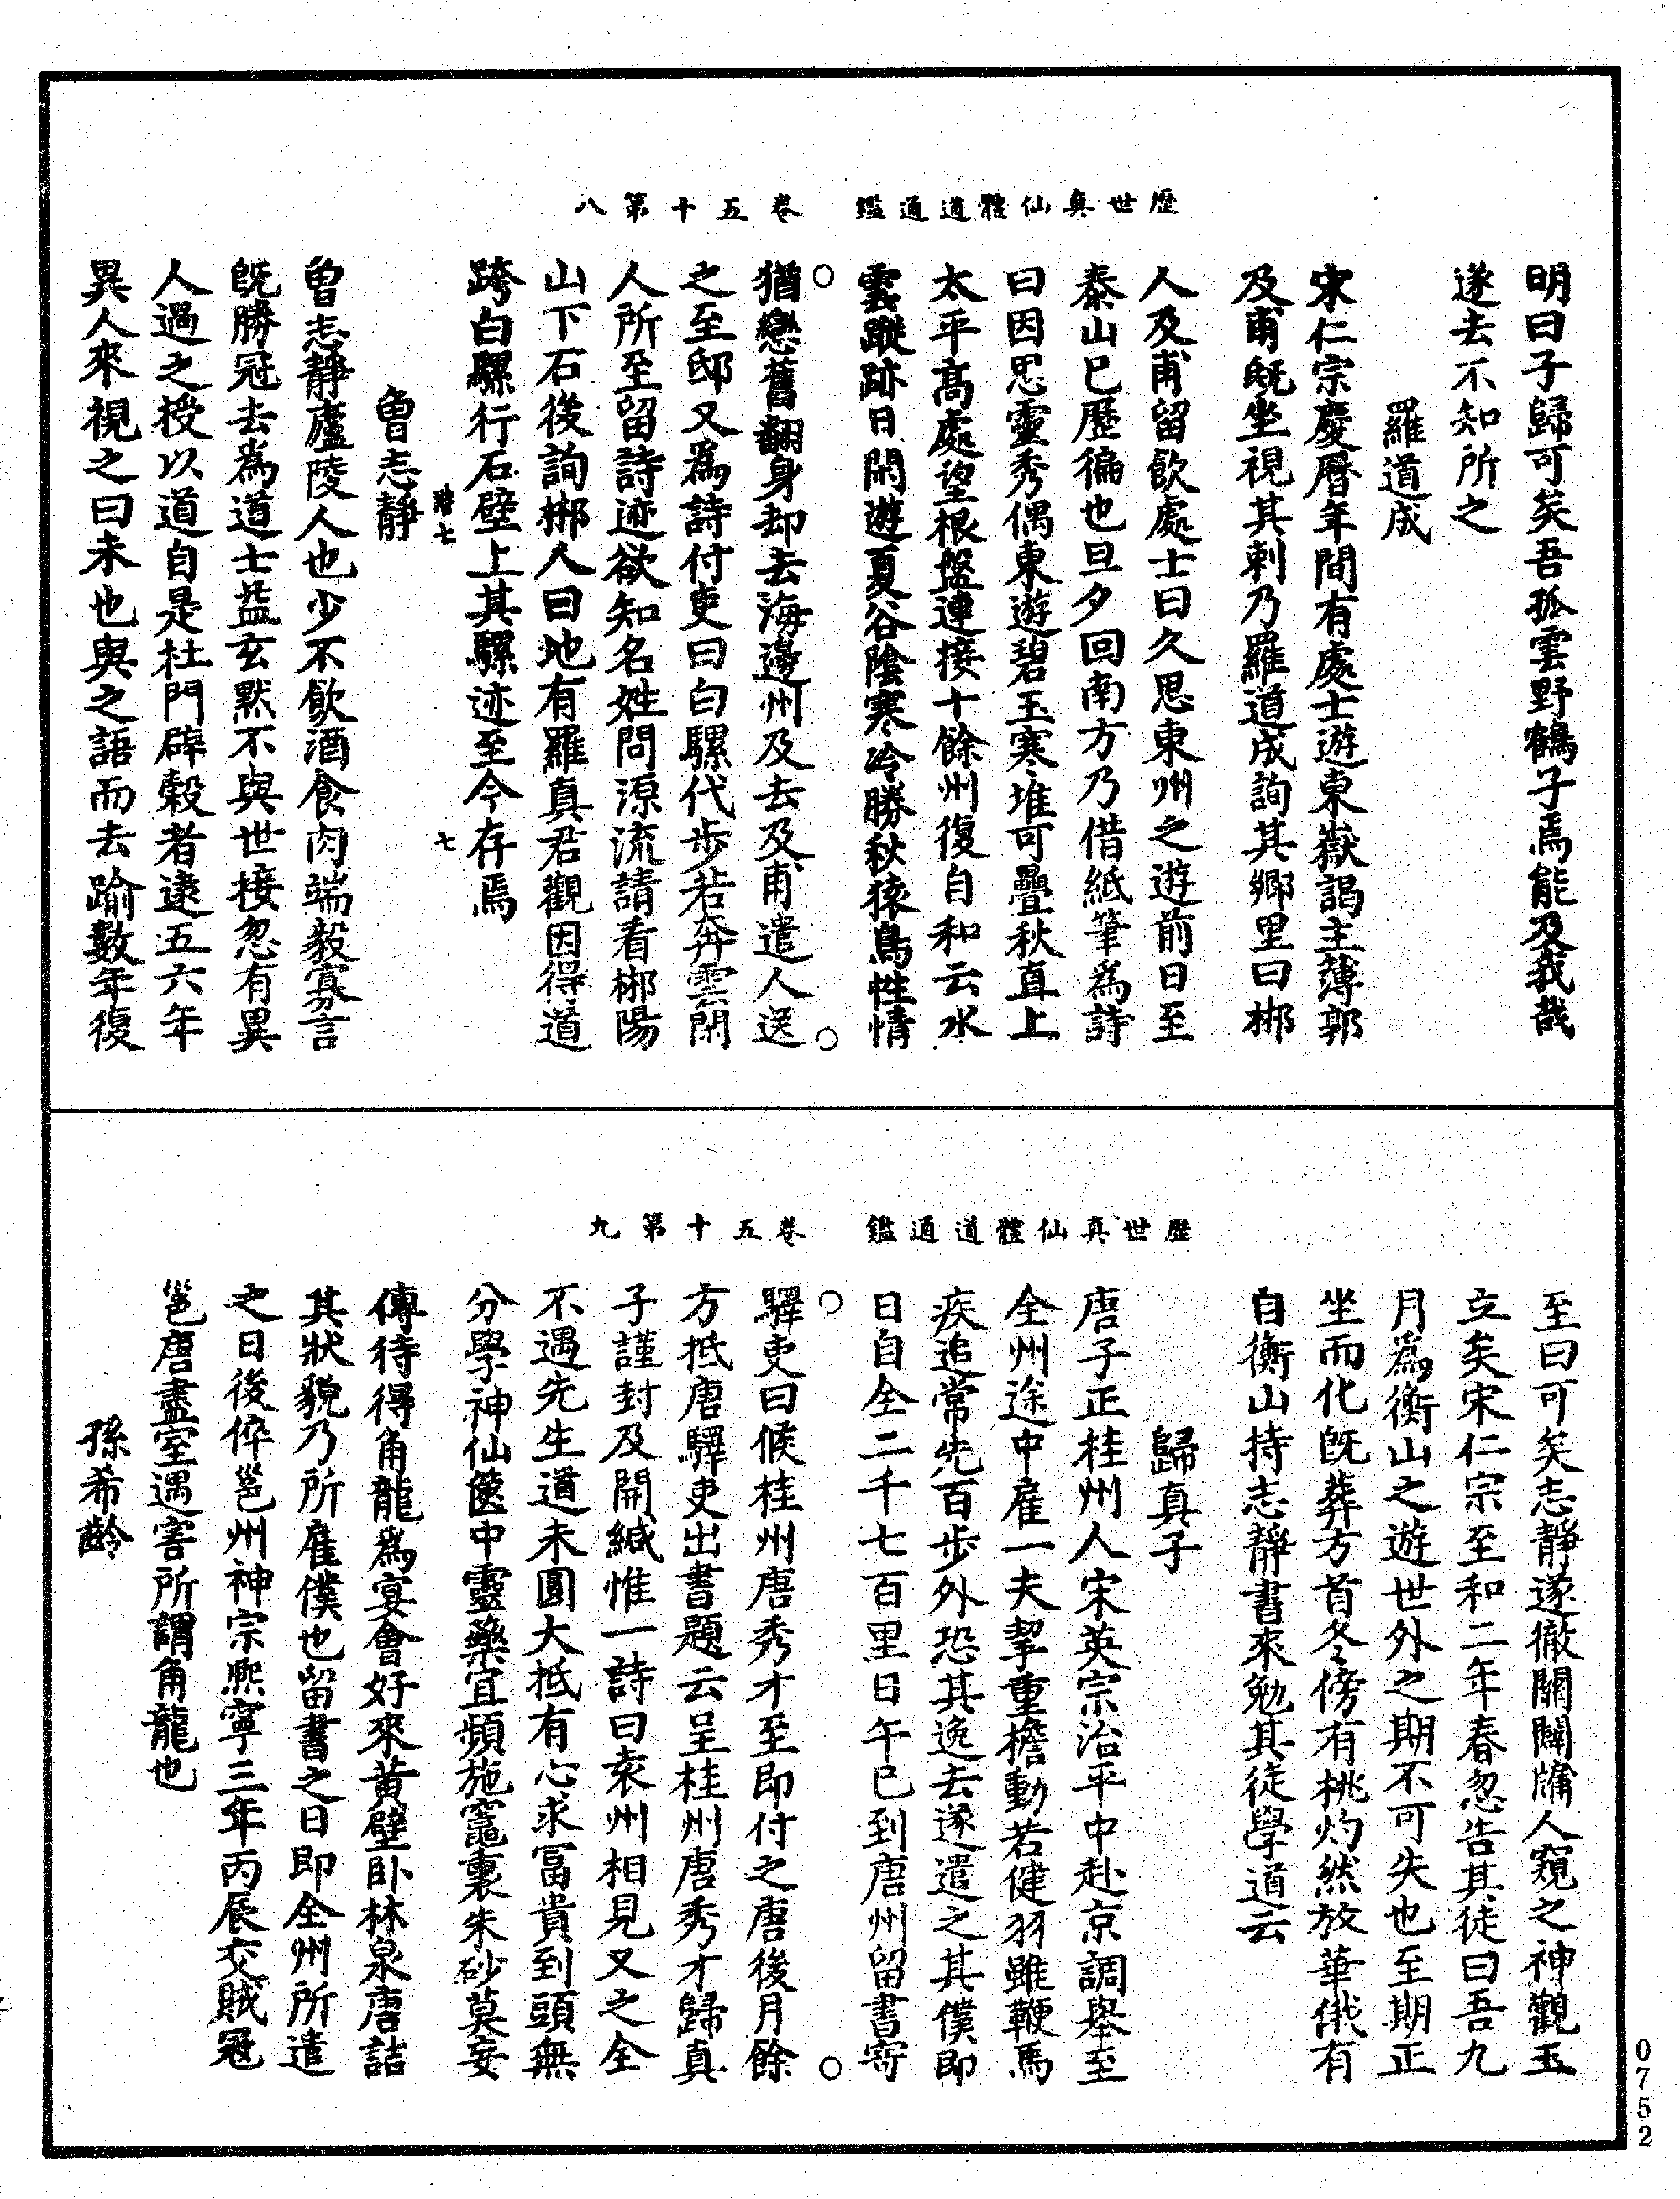 歷世真仙體道通鑑　卷五十第八
明曰子歸可矣吾孤雲野鶴子焉能及我哉
遂去不知所之
羅道成
宋仁宗慶曆年間有處士遊東嶽謁主薄郭
及甫既坐視其刺乃羅道成詢其鄉里曰郴
人及甫留飲處士曰久思東州之遊前日至
泰山已歷徧也旦夕回南方乃借紙筆為詩
曰因思靈秀偶東遊碧玉寒堆可疊秋直上
太平高處望根盤連接十餘州復自和云水
雲蹤跡日閑遊夏谷陰寒冷勝秋猿鳥性情
○猶戀舊翻身却去海邊州及去及甫遣人送○
之至邸又為詩付吏曰白騾代步若奔雲閑
人所至留詩迹欲知名姓問源流請看郴陽
山下石後詢郴人曰地有羅真君觀因得道
跨白騾行石壁上其騾迹至今存焉
七　七
曾志靜
曾志靜廬陵人也少不飲酒食肉端毅寡言
既勝冠去為道士益玄默不與世接忽有異
人過之授以道自是杜門辟穀者逮五六年
異人來視之曰未也與之語而去踰數年復
歷世真仙體道通鑑　卷五十第九
至曰可矣志靜遂徹關闢牖人窺之神觀玉
立矣宋仁宗至和二年春忽告其徒曰吾九
月為衡山之遊世外之期不可失也至期正
坐而化既葬方首冬傍有桃灼然放華俄有
自衡山持志靜書來勉其徒學道云
歸真子
唐子正桂州人宋英宗治平中赴京調舉至
全州途中雇一夫挈重擔動若健羽雖鞭馬
疾追常先百步外恐其逸去遂遣之其僕即
日自全二千七百里日午已到唐州留書寄
○驛吏曰候桂州唐秀才至即付之唐後月餘○
方抵唐驛吏出書題云呈桂州唐秀才歸真
子謹封及開緘惟一詩曰袁州相見又之全
不遇先生道未圓大抵有心求富貴到頭無
分學神仙篋中靈藥宜頻施竈裏朱砂莫妄
傳待得角龍為宴會好來黃壁臥林泉唐詰
其狀貌乃所雇僕也留書之日即全州所遣
之日後倅邕州神宗熙寧三年丙辰交賊寇
邕唐盡室遇害所謂角龍也
孫希齡
0752